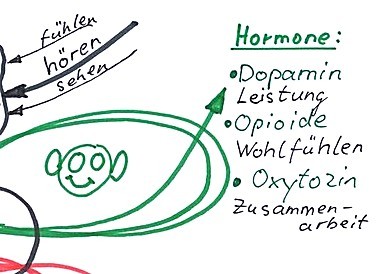 fühlen
hören
sehen
Hormone:
• Dopamin
Leistung
• Opioide
Wohlfühlen
• Oxytozin
Zusammen-
arbeit